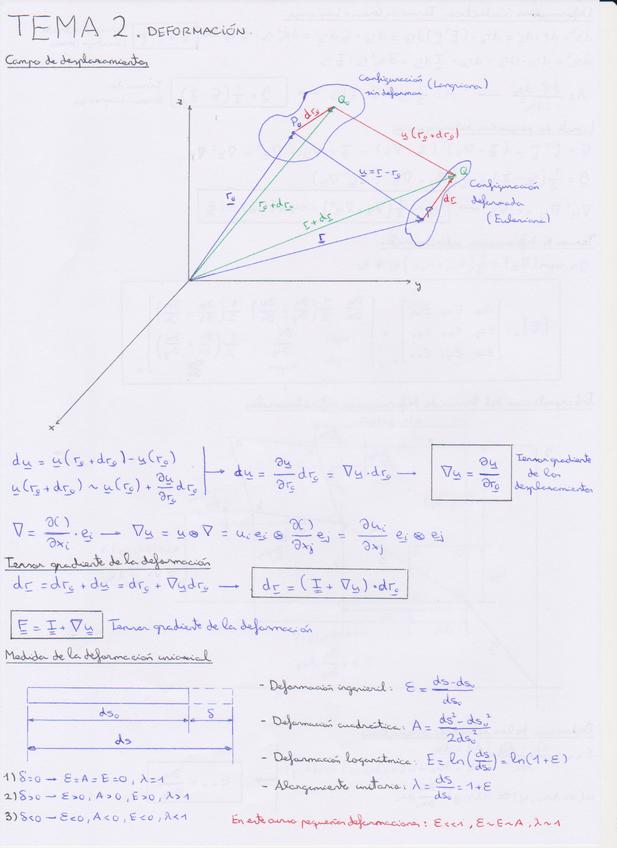 TEMA 2. DEFORMACIÓN.
Campo de desplazamientos
z
Configuración (Langriana)
sin deformar
Q₀
dr₀
P₀
u(r₀+dr₀)
u = r - r₀
r₀
r₀+dr₀
Q
Configuración
deformada
(Euleriana)
dr
P
r+dr
r
y
x
du = u(r₀+dr₀) - u(r₀)
u(r₀+dr₀) ~ u(r₀) + ∂u/∂r₀ dr₀
→ du = ∂u/∂r₀ dr₀ = ∇u·dr₀ → ∇u = ∂u/∂r₀
Tensor gradiente
de los
desplazamientos
∇ = ∂( )/∂xᵢ · eᵢ → ∇u = u⊗∇ = uᵢ eᵢ ⊗ ∂( )/∂xⱼ eⱼ = ∂uᵢ/∂xⱼ eᵢ ⊗ eⱼ
Tensor gradiente de la deformación
dr = dr₀ + du = dr₀ + ∇u dr₀ → dr = (I + ∇u)·dr₀
E = I + ∇u Tensor gradiente de la deformación
Medida de la deformación uniaxial
ds₀
δ
ds
- Deformación ingenieril: ε = ds-ds₀/ds₀
- Deformación cuadrática: A = ds²-ds₀²/2ds₀²
- Deformación logarítmica: E = ln(ds/ds₀) = ln(1+ε)
- Alargamiento unitario: λ = ds/ds₀ = 1+ε
1) δ=0 → ε=A=E=0, λ=1
2) δ>0 → ε>0, A>0, E>0, λ>1
3) δ<0 → ε<0, A<0, E<0, λ<1
En este curso pequeñas deformaciones: ε<<1, ε~E~A, λ~1